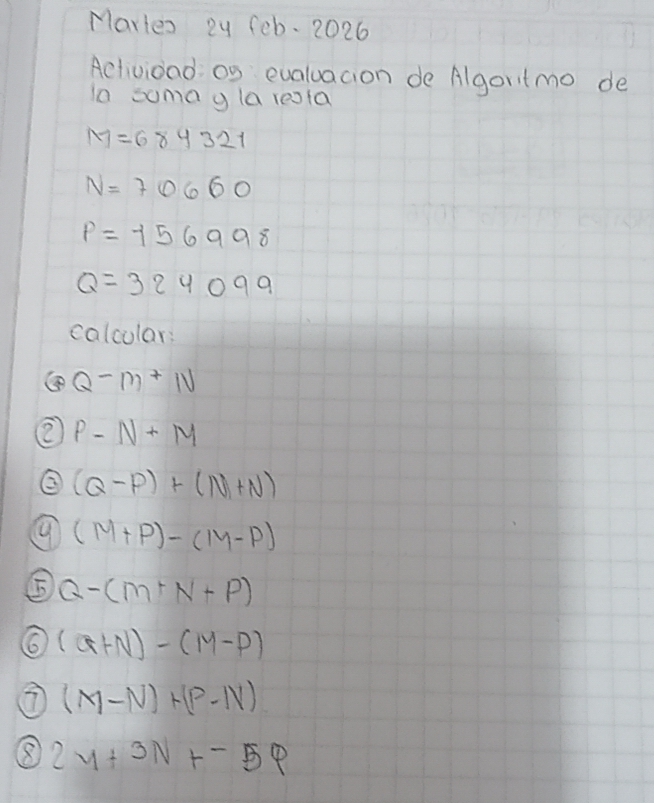 Martes 24 feb. 2026
Actividad: 05 evaluacion de Algoritmo de
la suma y la resta
M=684321
N=70660
P=156998
Q=324099
calcular:
① Q-m+N
② P-N+M
③ (Q-P)+(N+N)
④ (M+P)-(M-P)
⑤ Q-(m+N+P)
⑥ (Q+N)-(M-P)
⑦ (M-N)+(P-N)
⑧ 2M+3N+-5P